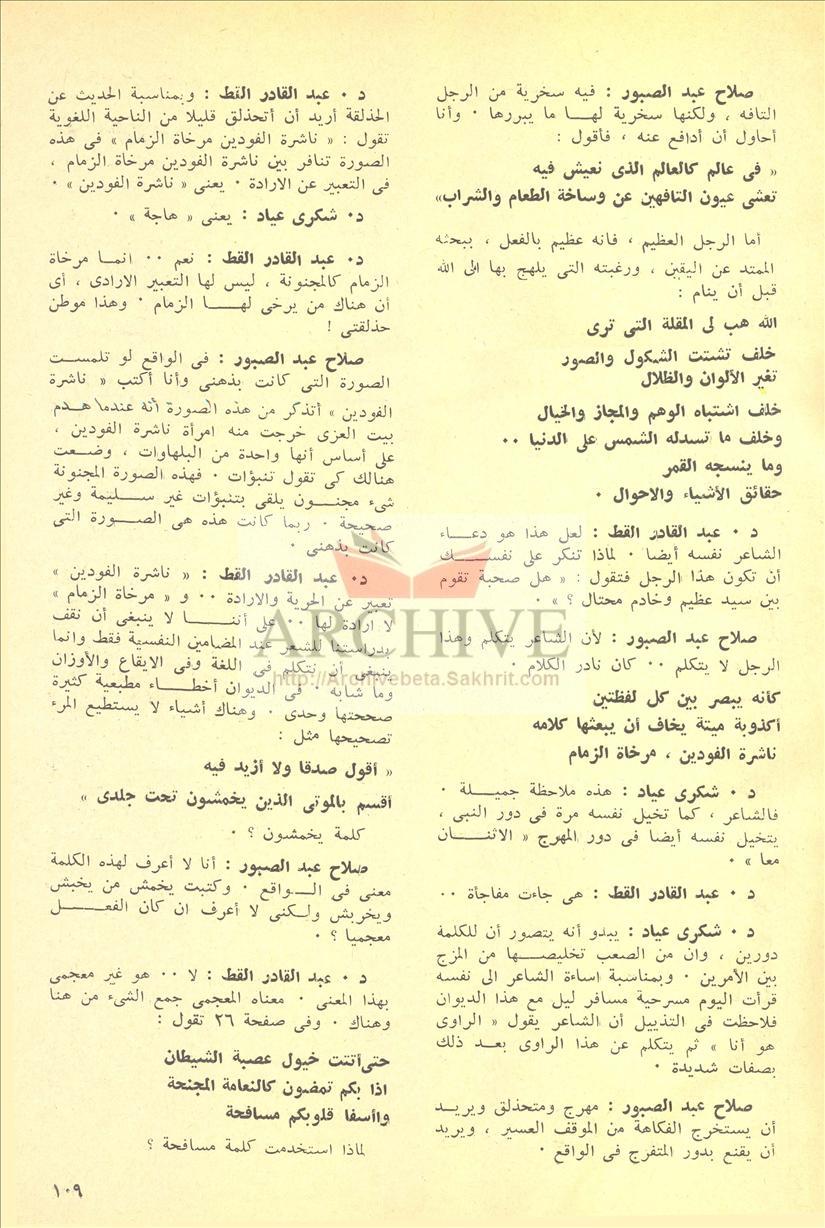 صلاح عبد الصبور : فيه سخرية من الرجل
التافه ، ولكنها سخرية لهــا ما يبررها · وأنا
أحاول أن أدافع عنه ، فأقول :
« فى عالم كالعالم الذى نعيش فيه
تعشى عيون التافهين عن وساخة الطعام والشراب»
أما الرجل العظيم ، فانه عظيم بالفعل ، ببحثه
الممتد عن اليقين ، ورغبته التى يلهج بها الى الله
قبل أن ينام :
الله هب لى المقلة التى ترى
خلف تشتت الشكول والصور
تغير الألوان والظلال
خلف اشتباه الوهم والمجاز والخيال
وخلف ما تسدله الشمس على الدنيا ··
وما ينسجه القمر
حقائق الأشياء والاحوال ·
د · عبد القادر القط : لعل هذا هو دعــاء
الشاعر نفسه أيضا · لماذا تنكر على نفســك
أن تكون هذا الرجل فتقول : « هل صحبة تقوم
بين سيد عظيم وخادم محتال ؟ » ·
صلاح عبد الصبور : لأن الشاعر يتكلم وهذا
الرجل لا يتكلم ·· كان نادر الكلام ·
كأنه يبصر بين كل لفظتين
أكذوبة ميتة يخاف أن يبعثها كلامه
ناشرة الفودين ، مرخاة الزمام
د · شكرى عياد : هذه ملاحظة جميــلة ·
فالشاعر ، كما تخيل نفسه مرة فى دور النبى ،
يتخيل نفسه أيضا فى دور المهرج « الاثنــان
معا » ·
د · عبد القادر القط : هى جاءت مفاجأة ··
د · شكرى عياد : يبدو أنه يتصور أن للكلمة
دورين ، وان من الصعب تخليصــها من المزج
بين الأمرين · وبمناسبة اساءة الشاعر الى نفسه
قرأت اليوم مسرحية مسافر ليل مع هذا الديوان
فلاحظت فى التذييل أن الشاعر يقول « الراوى
هو أنا » ثم يتكلم عن هذا الراوى بعد ذلك
بصفات شديدة ·
صلاح عبد الصبور : مهرج ومتحذلق ويريــد
أن يستخرج الفكاهة من الموقف العسير ، ويريد
أن يقنع بدور المتفرج فى الواقع ·
د · عبد القادر القط : وبمناسبة الحديث عن
الحذلقة أريد أن أتحذلق قليلا من الناحية اللغوية
تقول : « ناشرة الفودين مرخاة الزمام » فى هذه
الصورة تنافر بين ناشرة الفودين مرخاة الزمام ،
فى التعبير عن الارادة · يعنى « ناشرة الفودين » ·
د· شكرى عياد : يعنى « هاجة » ·
د· عبد القادر القط : نعم ·· انمــا مرخاة
الزمام كالمجنونة ، ليس لها التعبير الارادى ، أى
أن هناك من يرخى لهــا الزمام · وهذا موطن
حذلقتى !
صلاح عبد الصبور : فى الواقع لو تلمســت
الصورة التى كانت بذهنى وأنا أكتب « ناشرة
الفودين » أتذكر من هذه الصورة أنه عندما هـدم
بيت العزى خرجت منه امرأة ناشرة الفودين ،
على أساس أنها واحدة من البلهاوات ، وضــعت
هنالك كى تقول تنبؤات · فهذه الصورة المجنونة
شىء مجنــون يلقى بتنبؤات غير ســليمة وغير
صحيحة · ربما كانت هذه هى الصــورة التى
كانت بذهنى ·
د· عبد القادر القط : « ناشرة الفودين »
تعبير عن الحرية والارادة ·· و « مرخاة الزمام »
لا ارادة لها ·· على أننــا لا ينبغى أن نقف
بدراستنا للشعر عند المضامين النفسية فقط وانما
ينبغى أن نتكلم فى اللغة وفى الايقاع والأوزان
وما شابه · فى الديوان أخطــاء مطبعية كثيرة
صححتها وحدى · وهناك أشياء لا يستطيع المرء
تصحيحها مثل :
« أقول صدقا ولا أزيد فيه
أقسم بالموتى الذين يخمشون تحت جلدى »
كلمة يخمشون ؟ ·
صلاح عبد الصبور : أنا لا أعرف لهذه الكلمة
معنى فى الــواقع · وكتبت يخمش من يخبش
ويخربش ولــكنى لا أعرف ان كان الفعــل
معجميا ؟ ·
د · عبد القادر القط : لا ·· هو غير معجمى
بهذا المعنى · معناه المعجمى جمع الشىء من هنا
وهناك · وفى صفحة ٢٦ تقول :
حتى أتتت خيول عصبة الشيطان
اذا بكم تمضون كالنعامة المجنحة
واأسفا قلوبكم مسافحة
لماذا استخدمت كلمة مسافحة ؟
١٠٩
ARCHIVE
http://Archivebeta.Sakhrit.com